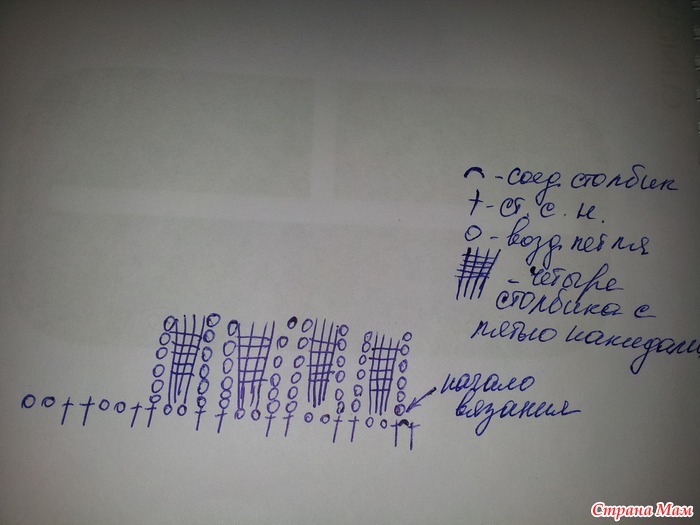 ⌢ - соед. столбик
† - ст. с. н.
о - возд. петля
- четыре
столбика с
пятью накидами
начало
вязания
Страна Мам